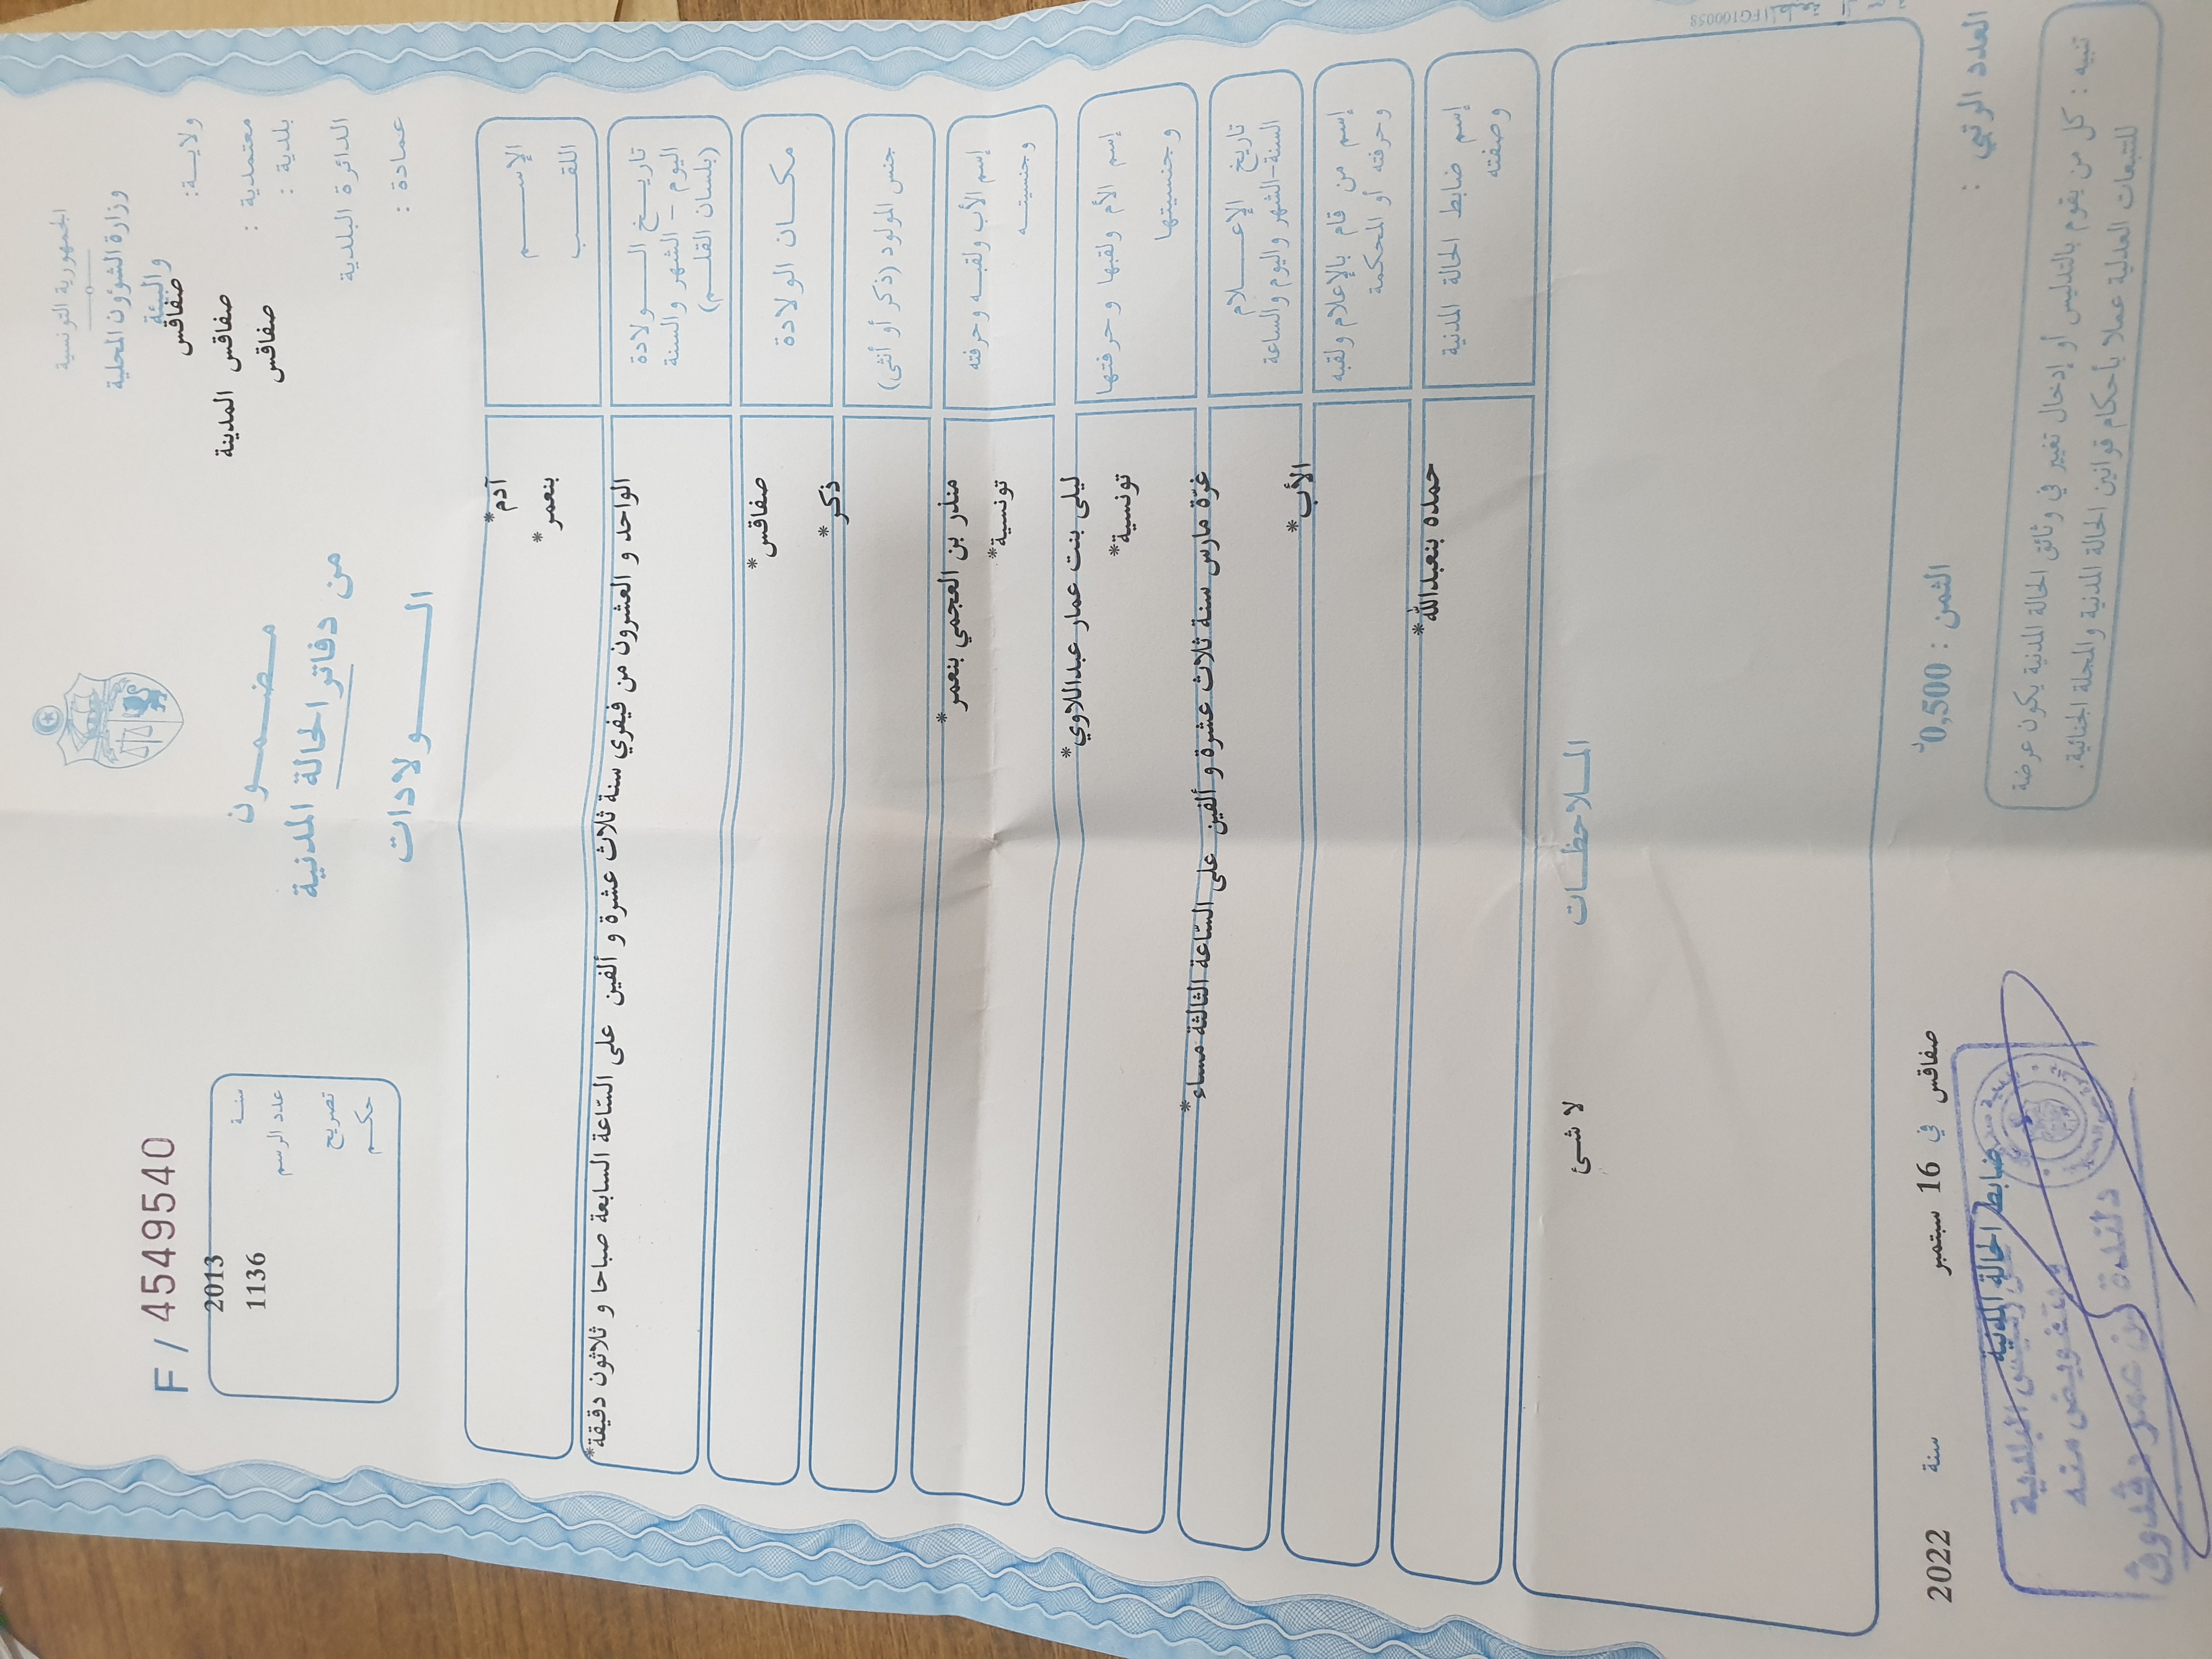 الجمهورية التونسية
وزارة الشؤون المحلية
والبيئة
ولايــة: صفاقس
معتمدية : صفاقس المدينة
بلدية : صفاقس
الدائرة البلدية
عمادة :
مـضـمـــون
من دفاتر الحالة المدنية
الــــولادات
F / 4549540
سنـة 2013
عدد الرسم 1136
تصريح
حكـم
الإســـــم آدم*
اللقـــــب بنعمر*
تاريــخ الـــــولادة
اليوم - الشهر والسنة
(بلسان القلــم)
الواحد و العشرون من فيفري سنة ثلاث عشرة و ألفين على السّاعة السابعة صباحا و ثلاثون دقيقة*
مكــان الولادة صفاقس*
جنس المولود (ذكر أو أنثى) ذكر*
إسم الأب ولقبــه وحرفته منذر بن العجمي بنعمر*
وجنسيتــه تونسية*
إسم الأم ولقبها وحرفتها ليلى بنت عمار عبداللاوي*
وجنسيتها تونسية*
تاريخ الإعــــلام
السنة-الشهر واليوم والساعة
غرّة مارس سنة ثلاث عشرة و ألفين على السّاعة الثالثة مساء*
إسم من قام بالإعلام ولقبه الأب*
وحرفته أو المحكمة
إسم ضابط الحالة المدنية حمده بنعبدالله*
وصفته
الملاحظــات
لا شئ
صفاقس في 16 سبتمبر سنة 2022
ضابط الحالة المدنية
وبتفويض منه
العدد الرتبي :
الثمن : 0,500د
تنبيه : كل من يقوم بالتدليس أو إدخال تغيير في وثائق الحالة المدنية يكون عرضة
للتتبعات العدلية عملا بأحكام قوانين الحالة المدنية والمجلة الجنائية.